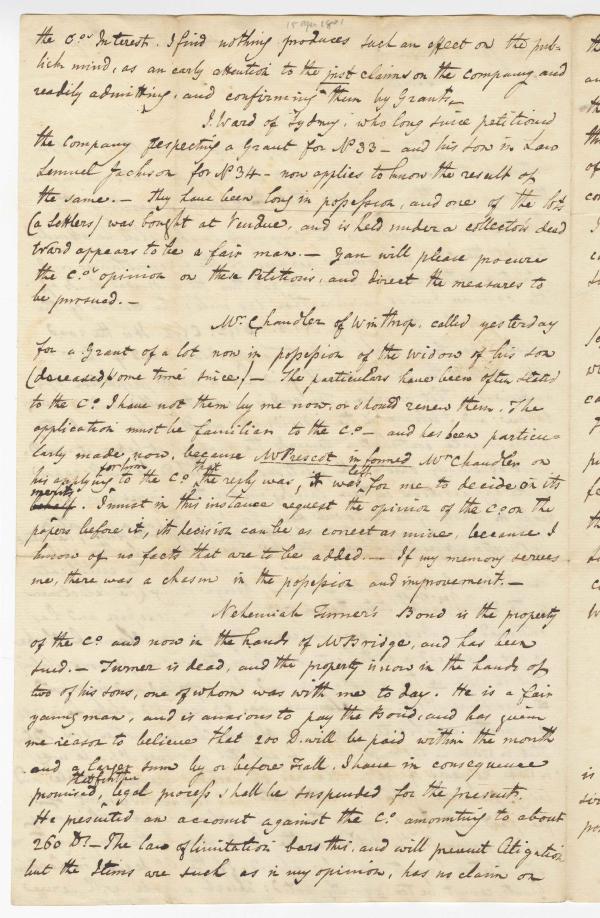 15 apr 1801
the Co.s Interest. I find nothing produces such an effect on the pub-
lick mind, as an early attention to the just claims on the company and
readily admitting, and confirming them by Grants.
J. Ward of Sydney, who long since petitioned
the Company respecting a Grant for No 33 - and his son in Law
Lemuel Jackson for No 34 - now applies to know the result of
the same. - They have been long in possession, and one of the lots
(a settlers) was bought at Vendue, and is held under a collectors deed
Ward appears to be a fair man. - You will please procure
the Co.s opinion on these Petitions, and direct the measures to
be pursued. -
Mr Chandler of Winthrop, called yesterday
for a Grant of a lot now in possession of the widow of his son
(deceased some time since) - The particulars have been often stated
to the Co. I have not them by me now, or should renew them. The
application must be familiar to the Co - and has been particu-
larly made now, because Mr Prescot informed Mr Chandler on
his applying for him to the Co. that the reply was, it was left for me to decide on its
merits. I must in this instance request the opinion of the Co. on the
papers before it, its decision can be as correct as mine, because I
know of no facts that are to be added. - If my memory serves
me, there was a chasm in the possession and improvement. -
Nehemiah Turner's Bond is the property
of the Co. and now in the hands of Mr Bridge, and has been
sued. - Turner is dead, and the property is now in the hands of
two of his sons, one of whom was with me to day. He is a fair
young man, and is anxious to pay the Bond, and has given
me reason to believe that 200 D. will be paid within the month
and a larger sum by or before Fall. I have in consequence
promised, legal process shall be suspended for the present.
He presented an account against the Co. amounting to about
260 Ds. - The law of limitation bars this, and will prevent litigation
but the Items are such as in my opinion, has no claim on